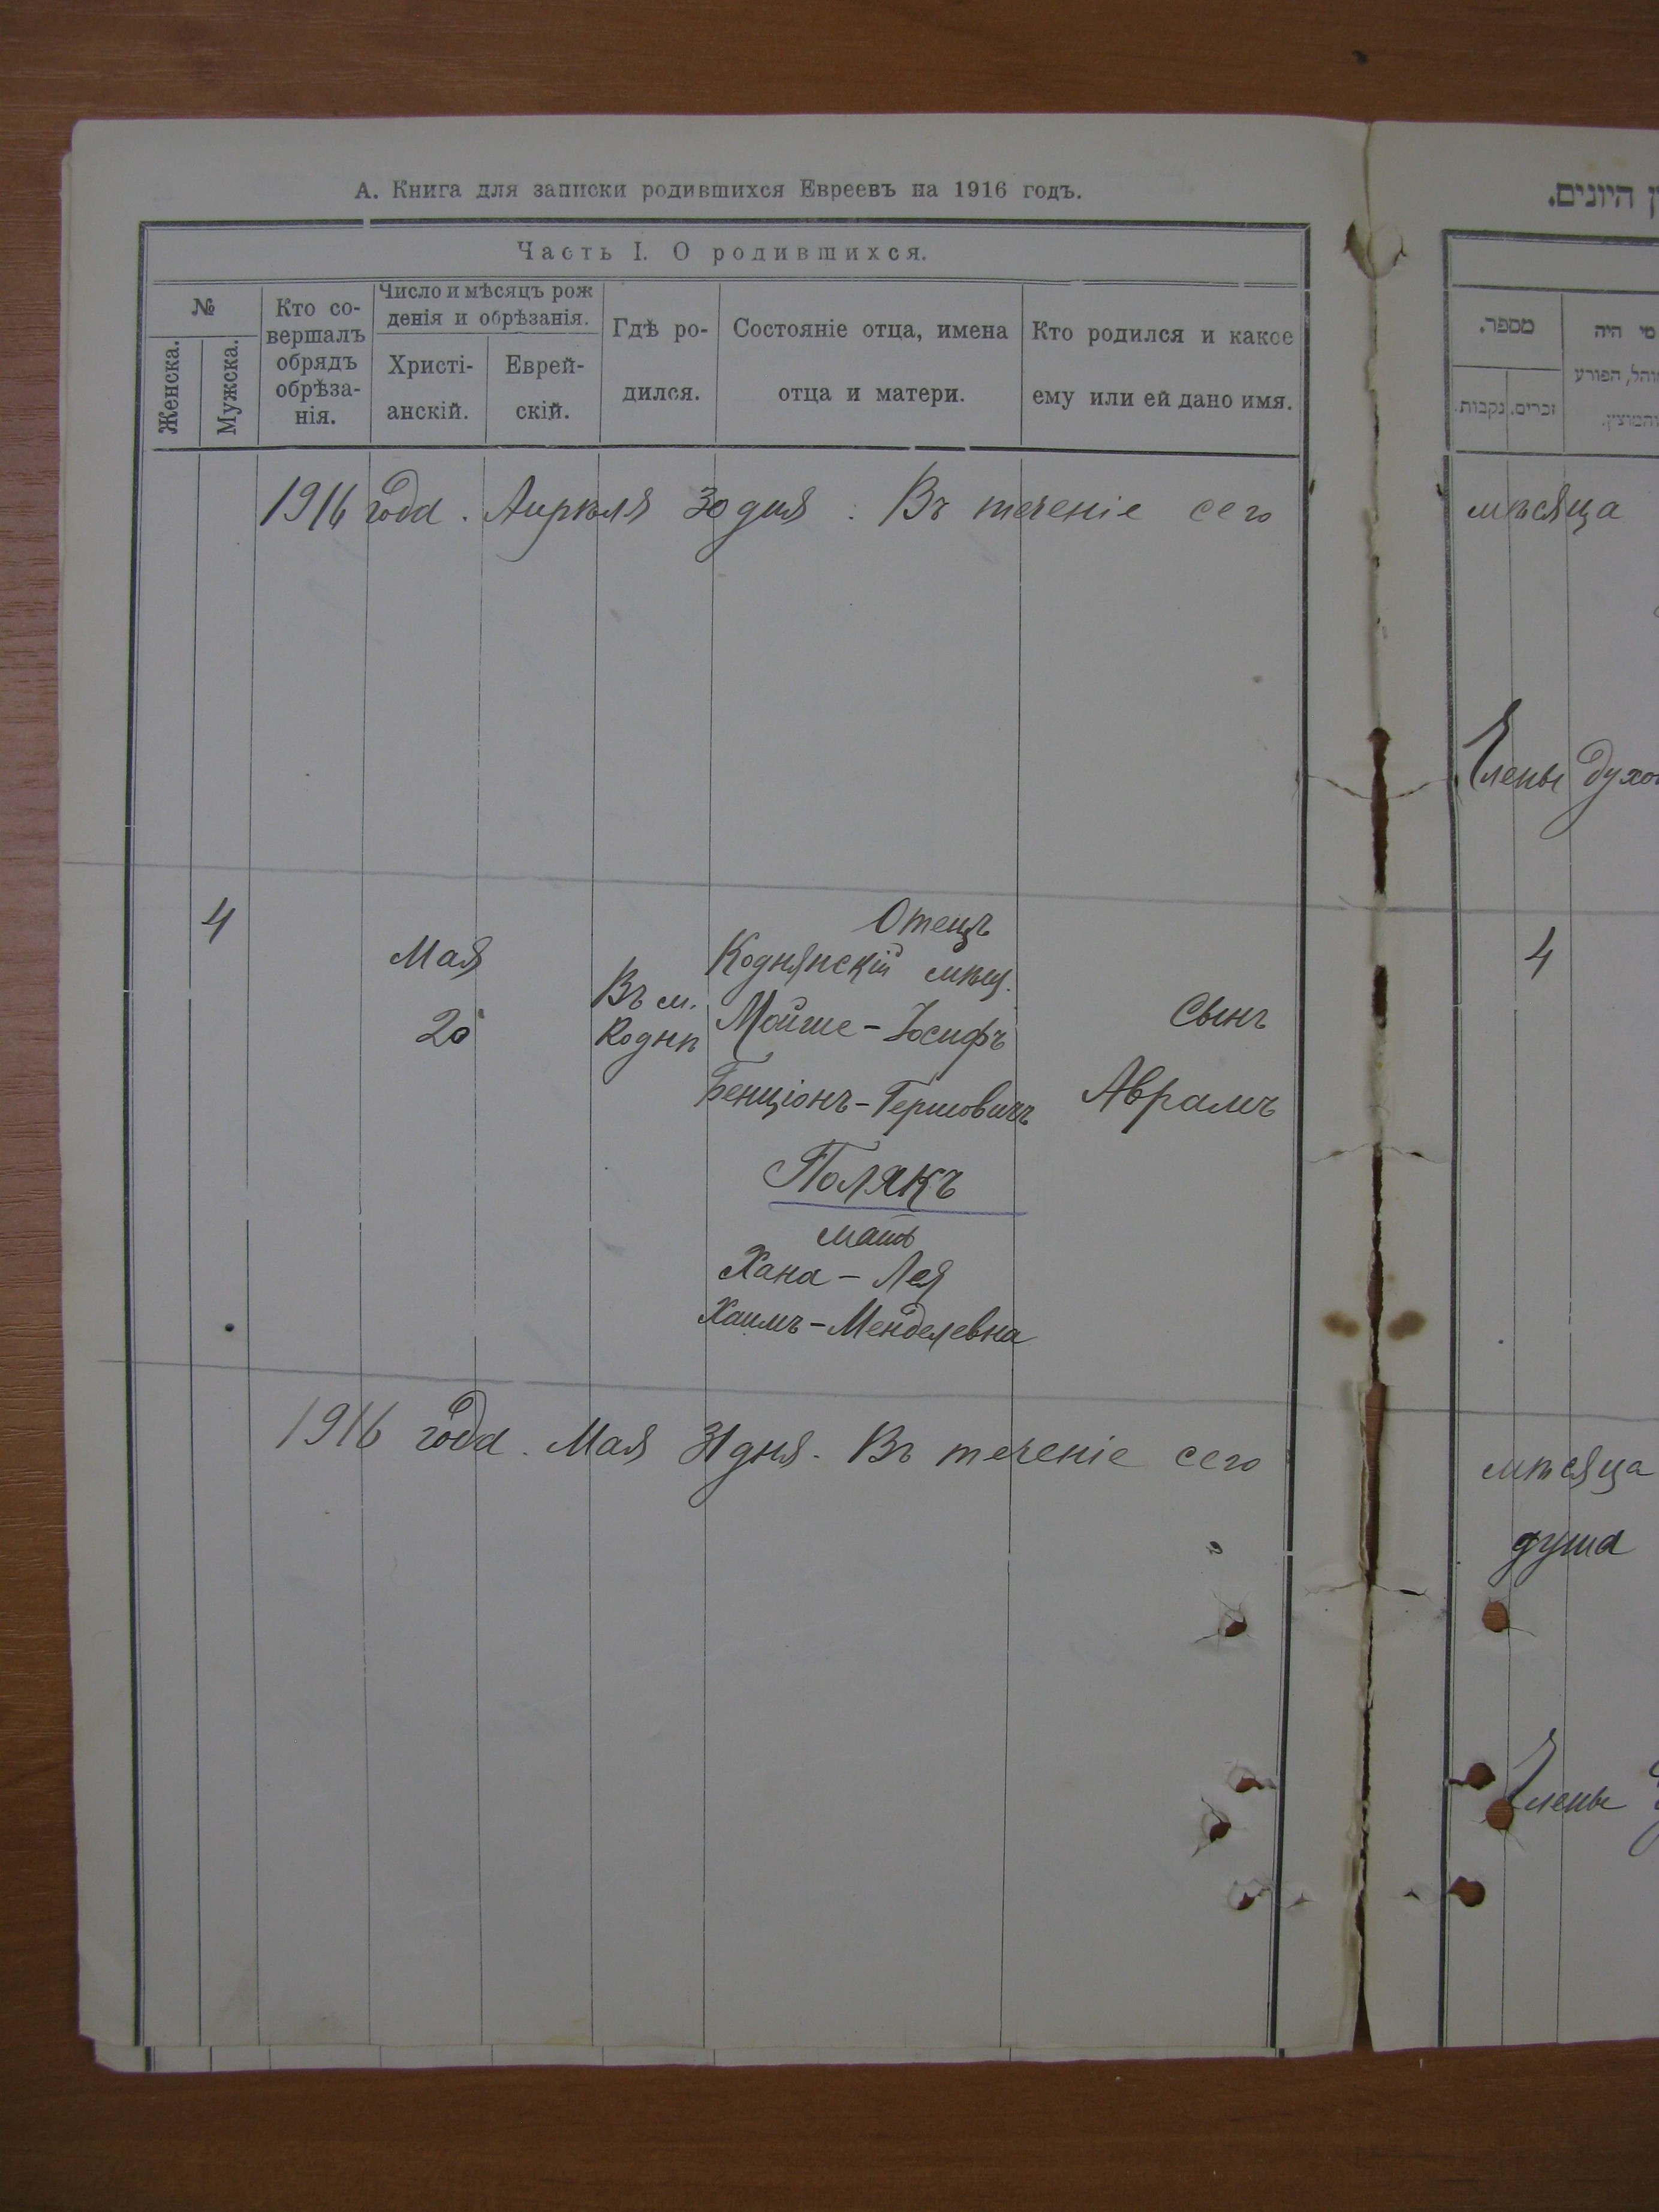 А. Книга для записки родившихся Евреевъ на 1916 годъ.
Часть I. О родившихся.
№
Женска.
Мужска.
Кто со-
вершалъ
обрядъ
обрѣза-
нія.
Число и мѣсяцъ рож
денія и обрѣзанія.
Христі-
анскій.
Еврей-
скій.
Гдѣ ро-
дился.
Состояніе отца, имена
отца и матери.
Кто родился и какое
ему или ей дано имя.
1916 года. Апрѣля 30 дня. Въ теченіе сего
4
Мая
20
Въ м.
Коднѣ
Отецъ
Коднянскій мѣщ.
Мойше-Іосифъ
Бенціонъ-Гершовичъ
Полякъ
мать
Хана-Лея
Хаимъ-Менделевна
Сынъ
Аврамъ
1916 года. Мая 31 дня. Въ теченіе сего
ן היונים.
מספר.
זכרים.
נקבות.
מי היה
מוהל, הפורע
והמוצץ.
мѣсяца
Члены духов
4
мѣсяца
душа
Члены